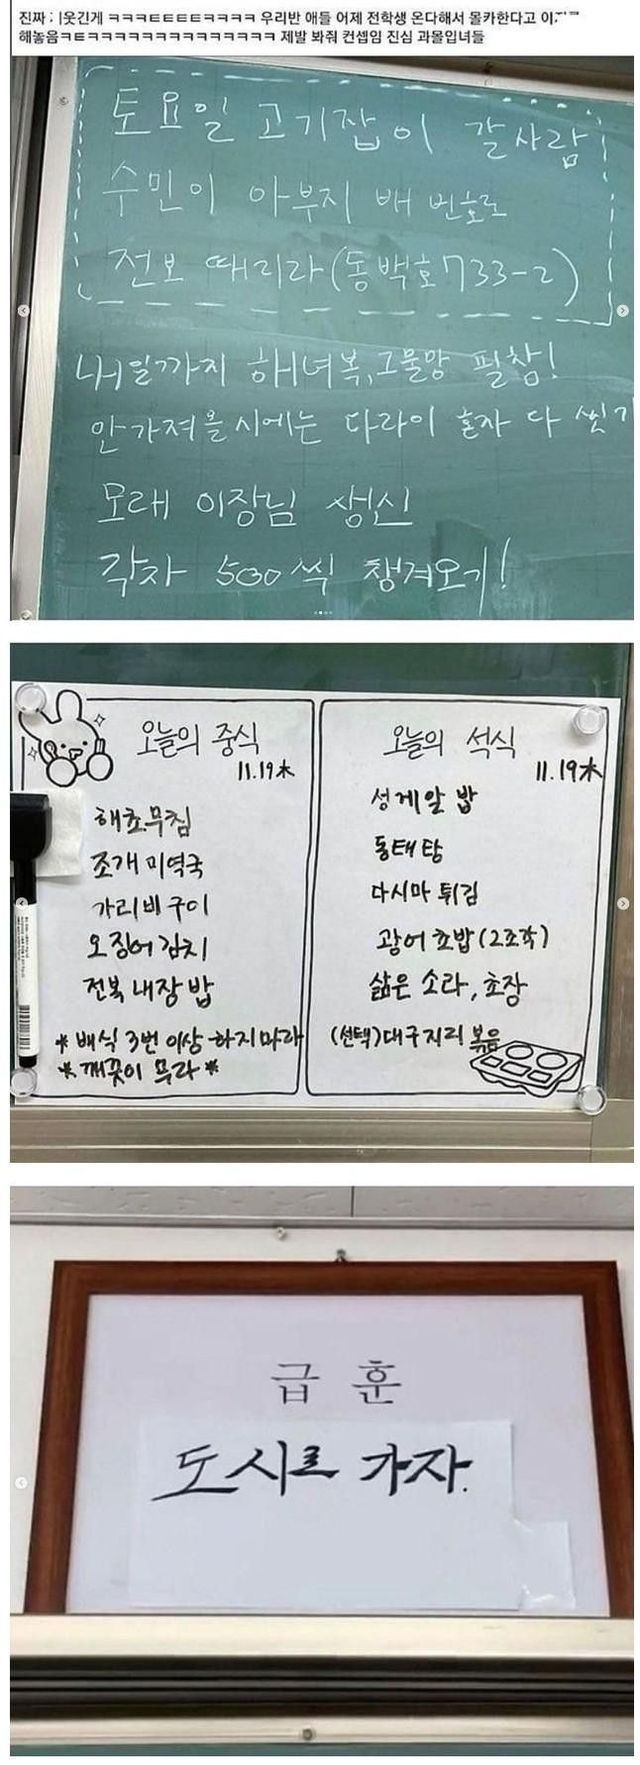 웃긴게 ㅋㅋㅋㅌㅌㅌㅌㅋㅋㅋㅋ 우리반 애들 어제 전학생 온다해서 몰카한다고
해놓음ㅋㅌㅋㅋㅋㅋㅋㅋㅋㅋㅋㅋㅋㅋㅋㅋ 제발 봐줘 컨셉임 진심 과몰입녀들
토요일 고기잡이 갈사람
수민이 아부지 배 번호로
전보 때리라(동백호733-2)
내일까지 해녀복,그물망 필참!
안가져올시에는 다라이 혼자 다 씻기
모레 이장님 생신
각자 500씩 챙겨오기!
오늘의 중식
11.19木
해초무침
조개 미역국
가리비 구이
오징어 김치
전복 내장 밥
*배식 3번 이상 하지마라
*깨끗이 무라*
오늘의 석식
11.19木
성게알 밥
동태탕
다시마 튀김
광어 초밥(2조각)
삶은 소라, 초장
(선택)대구지리 볶음
급 훈
도시로 가자.